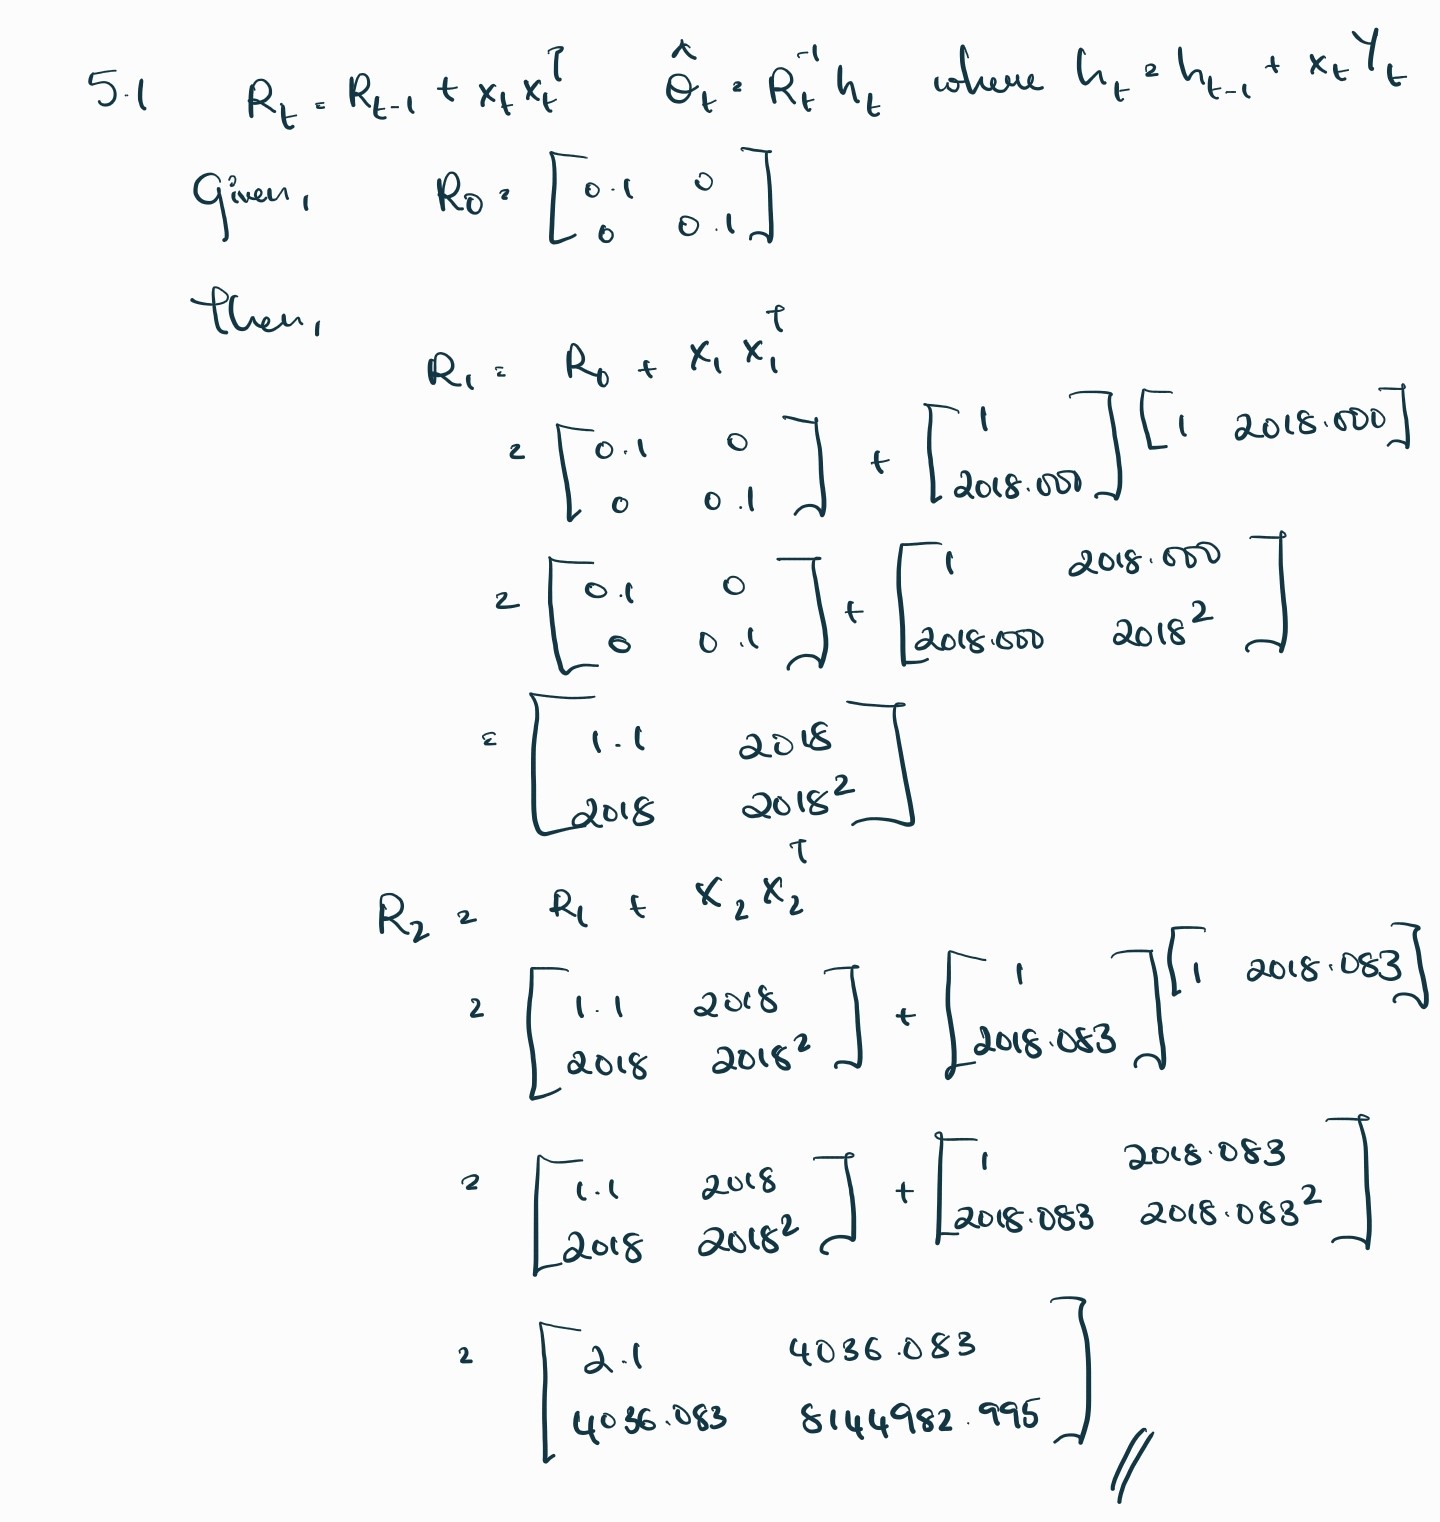 5.1 R_t = R_{t-1} + x_t x_t^T θ̂_t = R_t^{-1} h_t where h_t = h_{t-1} + x_t Y_t
Given, R_0 = [0.1 0
0 0.1]
then,
R_1 = R_0 + x_1 x_1^T
= [0.1 0 + [1 [1 2018.000]
0 0.1] 2018.000]
= [0.1 0 + [1 2018.000
0 0.1] 2018.000 2018^2]
= [1.1 2018
2018 2018^2]
R_2 = R_1 + x_2 x_2^T
= [1.1 2018 + [1 [1 2018.083]
2018 2018^2] 2018.083]
= [1.1 2018 + [1 2018.083
2018 2018^2] 2018.083 2018.083^2]
= [2.1 4036.083
4036.083 8144982.995] //